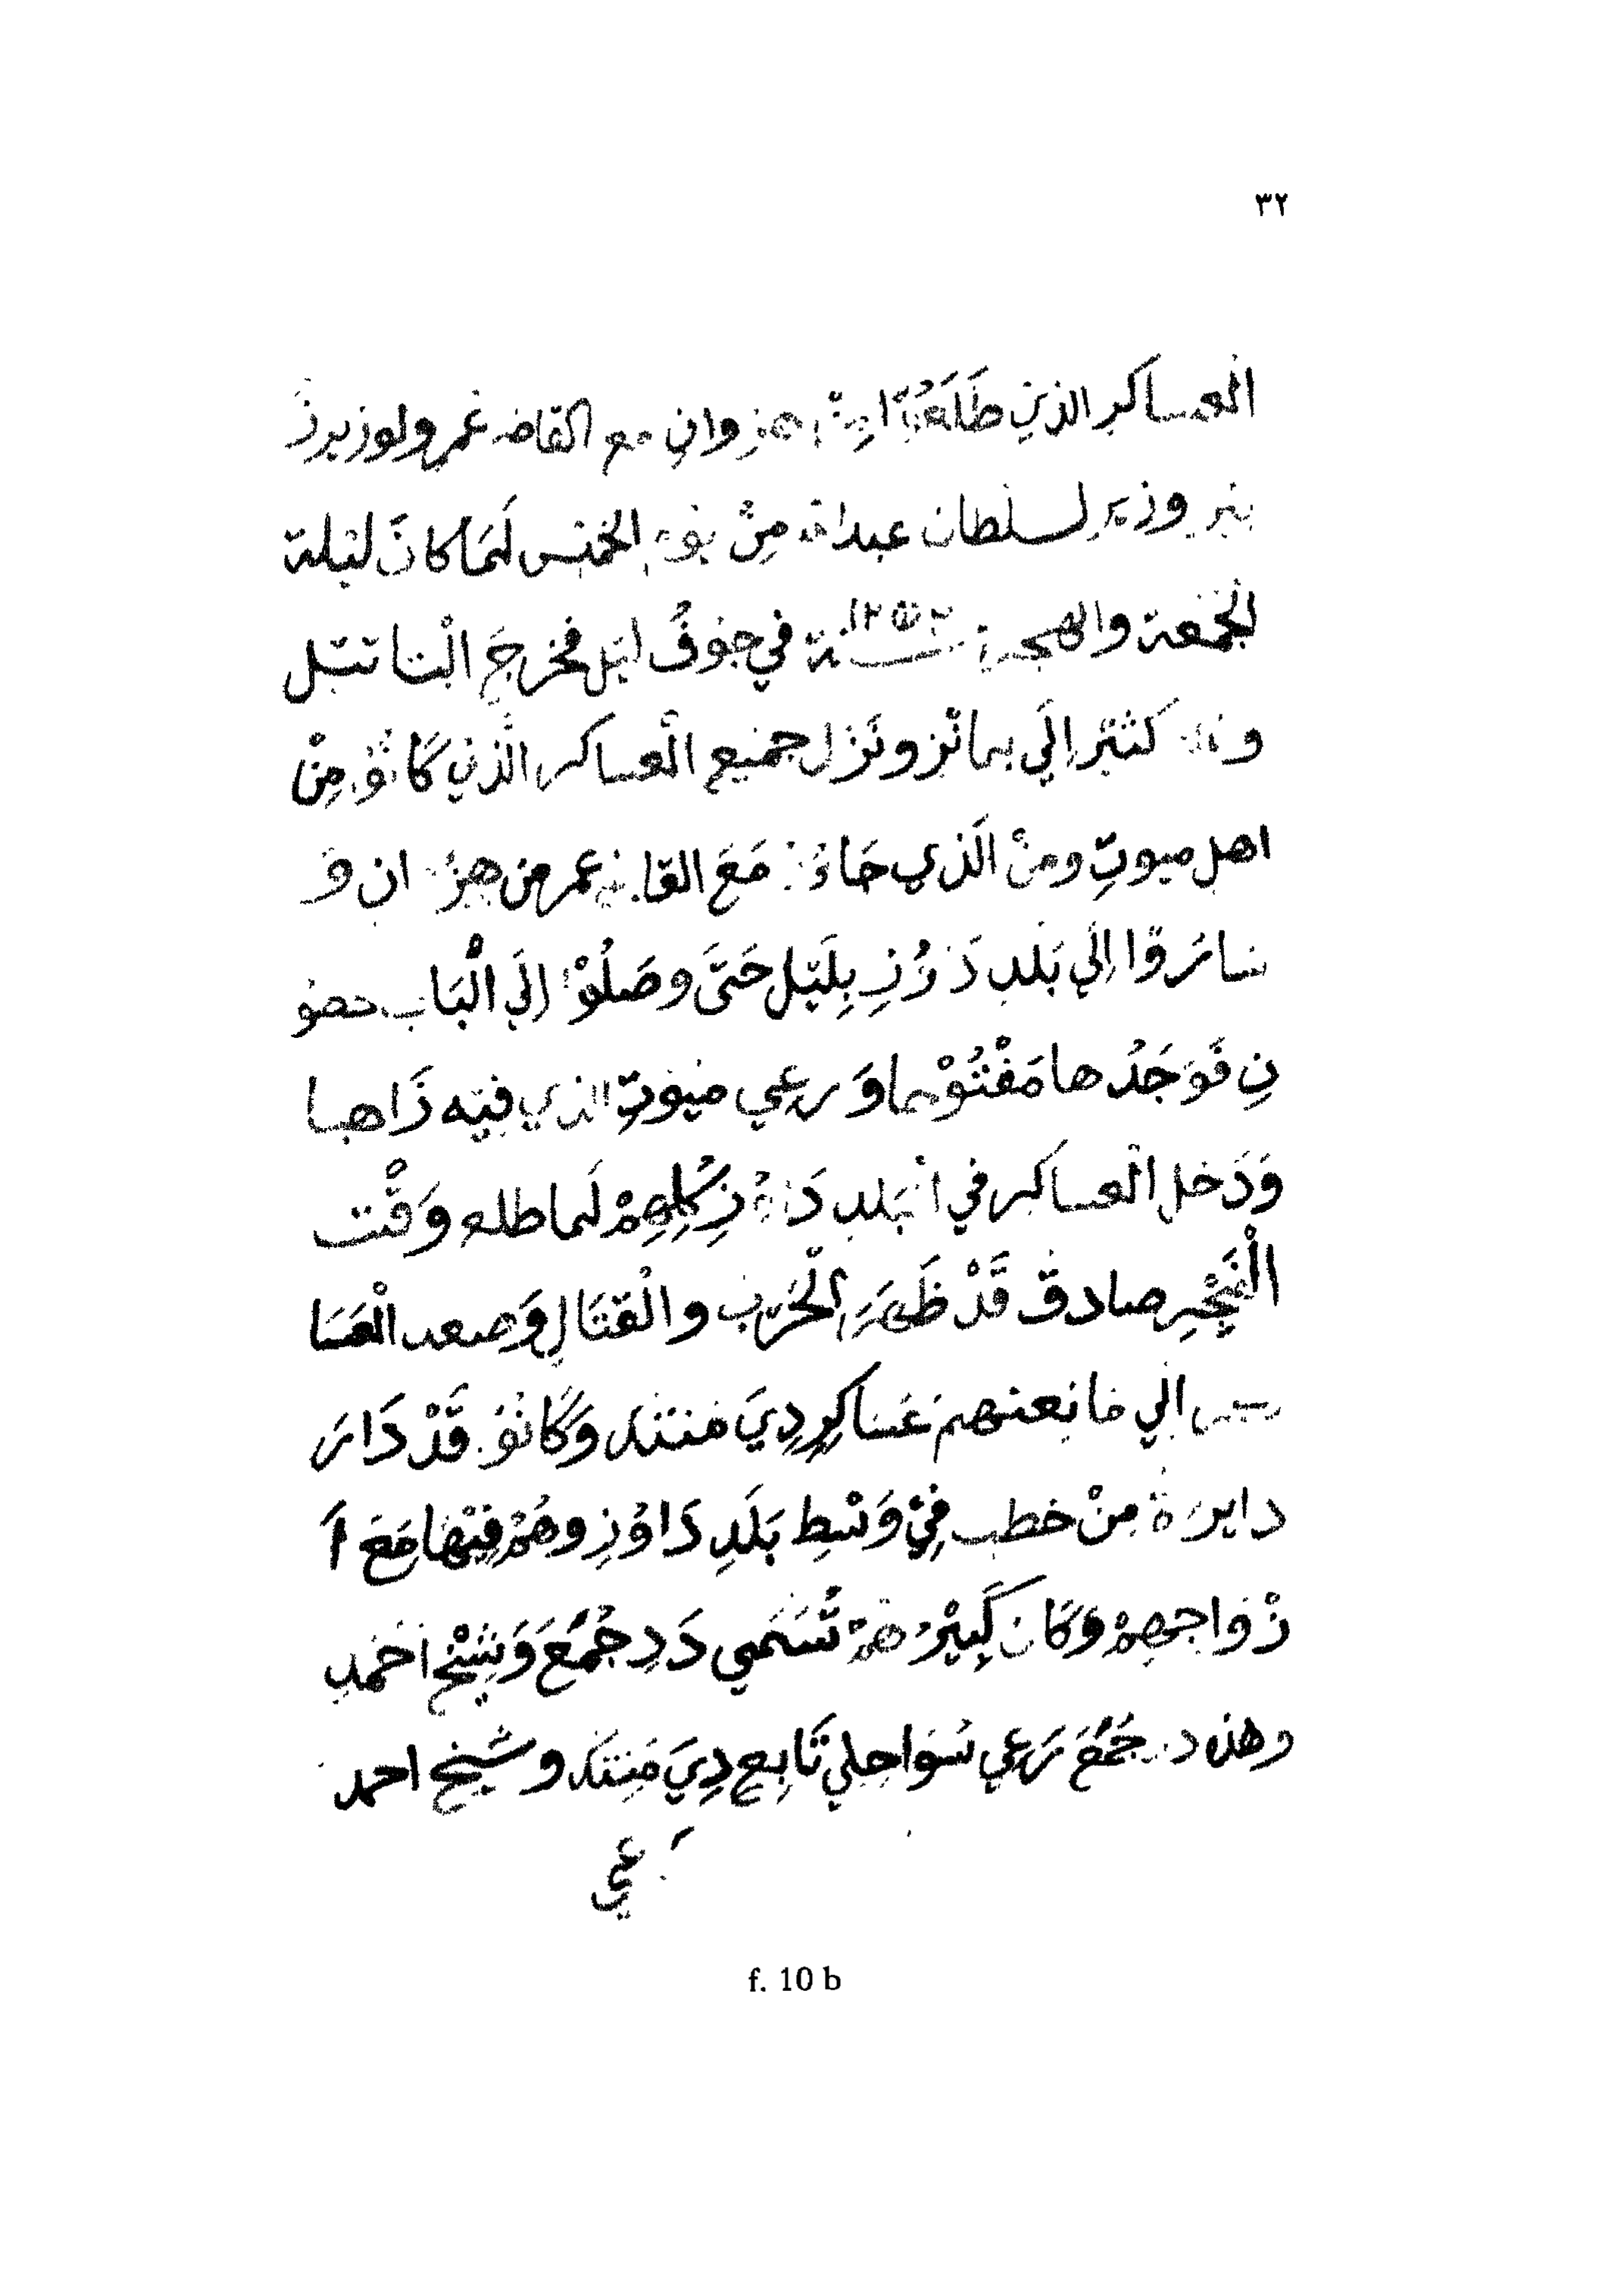 ٣٢
العساكر الذين طَلَعُوْا مِنْ هنزوان مع القاضه عمر ولوزيرز
بير وزير لسلطان عبدالله مِنْ يوم الخميس لَمَا كَانَ ليلة
الجمعة والهجرة سنة في جوفُ ليل فخرجَ الْبتا تتيل
كثير إِلَي بمانز ونَزَل جميع الْعساكر الَّذي كَانُوْ مِنْ
اهل ميوتِ ومنْ الَذي جَاءُ مَعَ القاضه عمر من هنزوان و
سَارَوْا اِلَي بَلَد دَوُزِ بِلَيْل حَتَّى وصَلُوْا إِلَي الْبَاب حصو
نِ فَوَجَدُ ها مَفْتُوْحا وَرعي ميوتِ الذي فيه ذَاهبا
وَدَخل الْعساكر في الْبلد دَاوُزِ كُلِهِمْ لَما طلع وَقْت
الْفَجْرِ صادق قَدْ ظَهَرَ الْحَرب والْقتَالِ وَصعد الْعَسَا
الي مانعنهم عَسَاكرِ دِيَ مَنتك وَكَانُوْ قَدْ دَارَ
دايرَة مِنْ خطب فِيْ وَسْطِ بَلَدِ دَاوُزِ وهُمْ فِيْهَا مَعَ اَ
زْوَاجهِمْ وَكَان كَبِيْرُ هُمْ تُسَمي دَدِ جُمُعَ وَشِيْخ احمد
وهذ دد جُمُعَ رَعي سَوَاحلي تَابِع دِيَ مَنتك وشيخ احمد
رَعي
f. 10 b